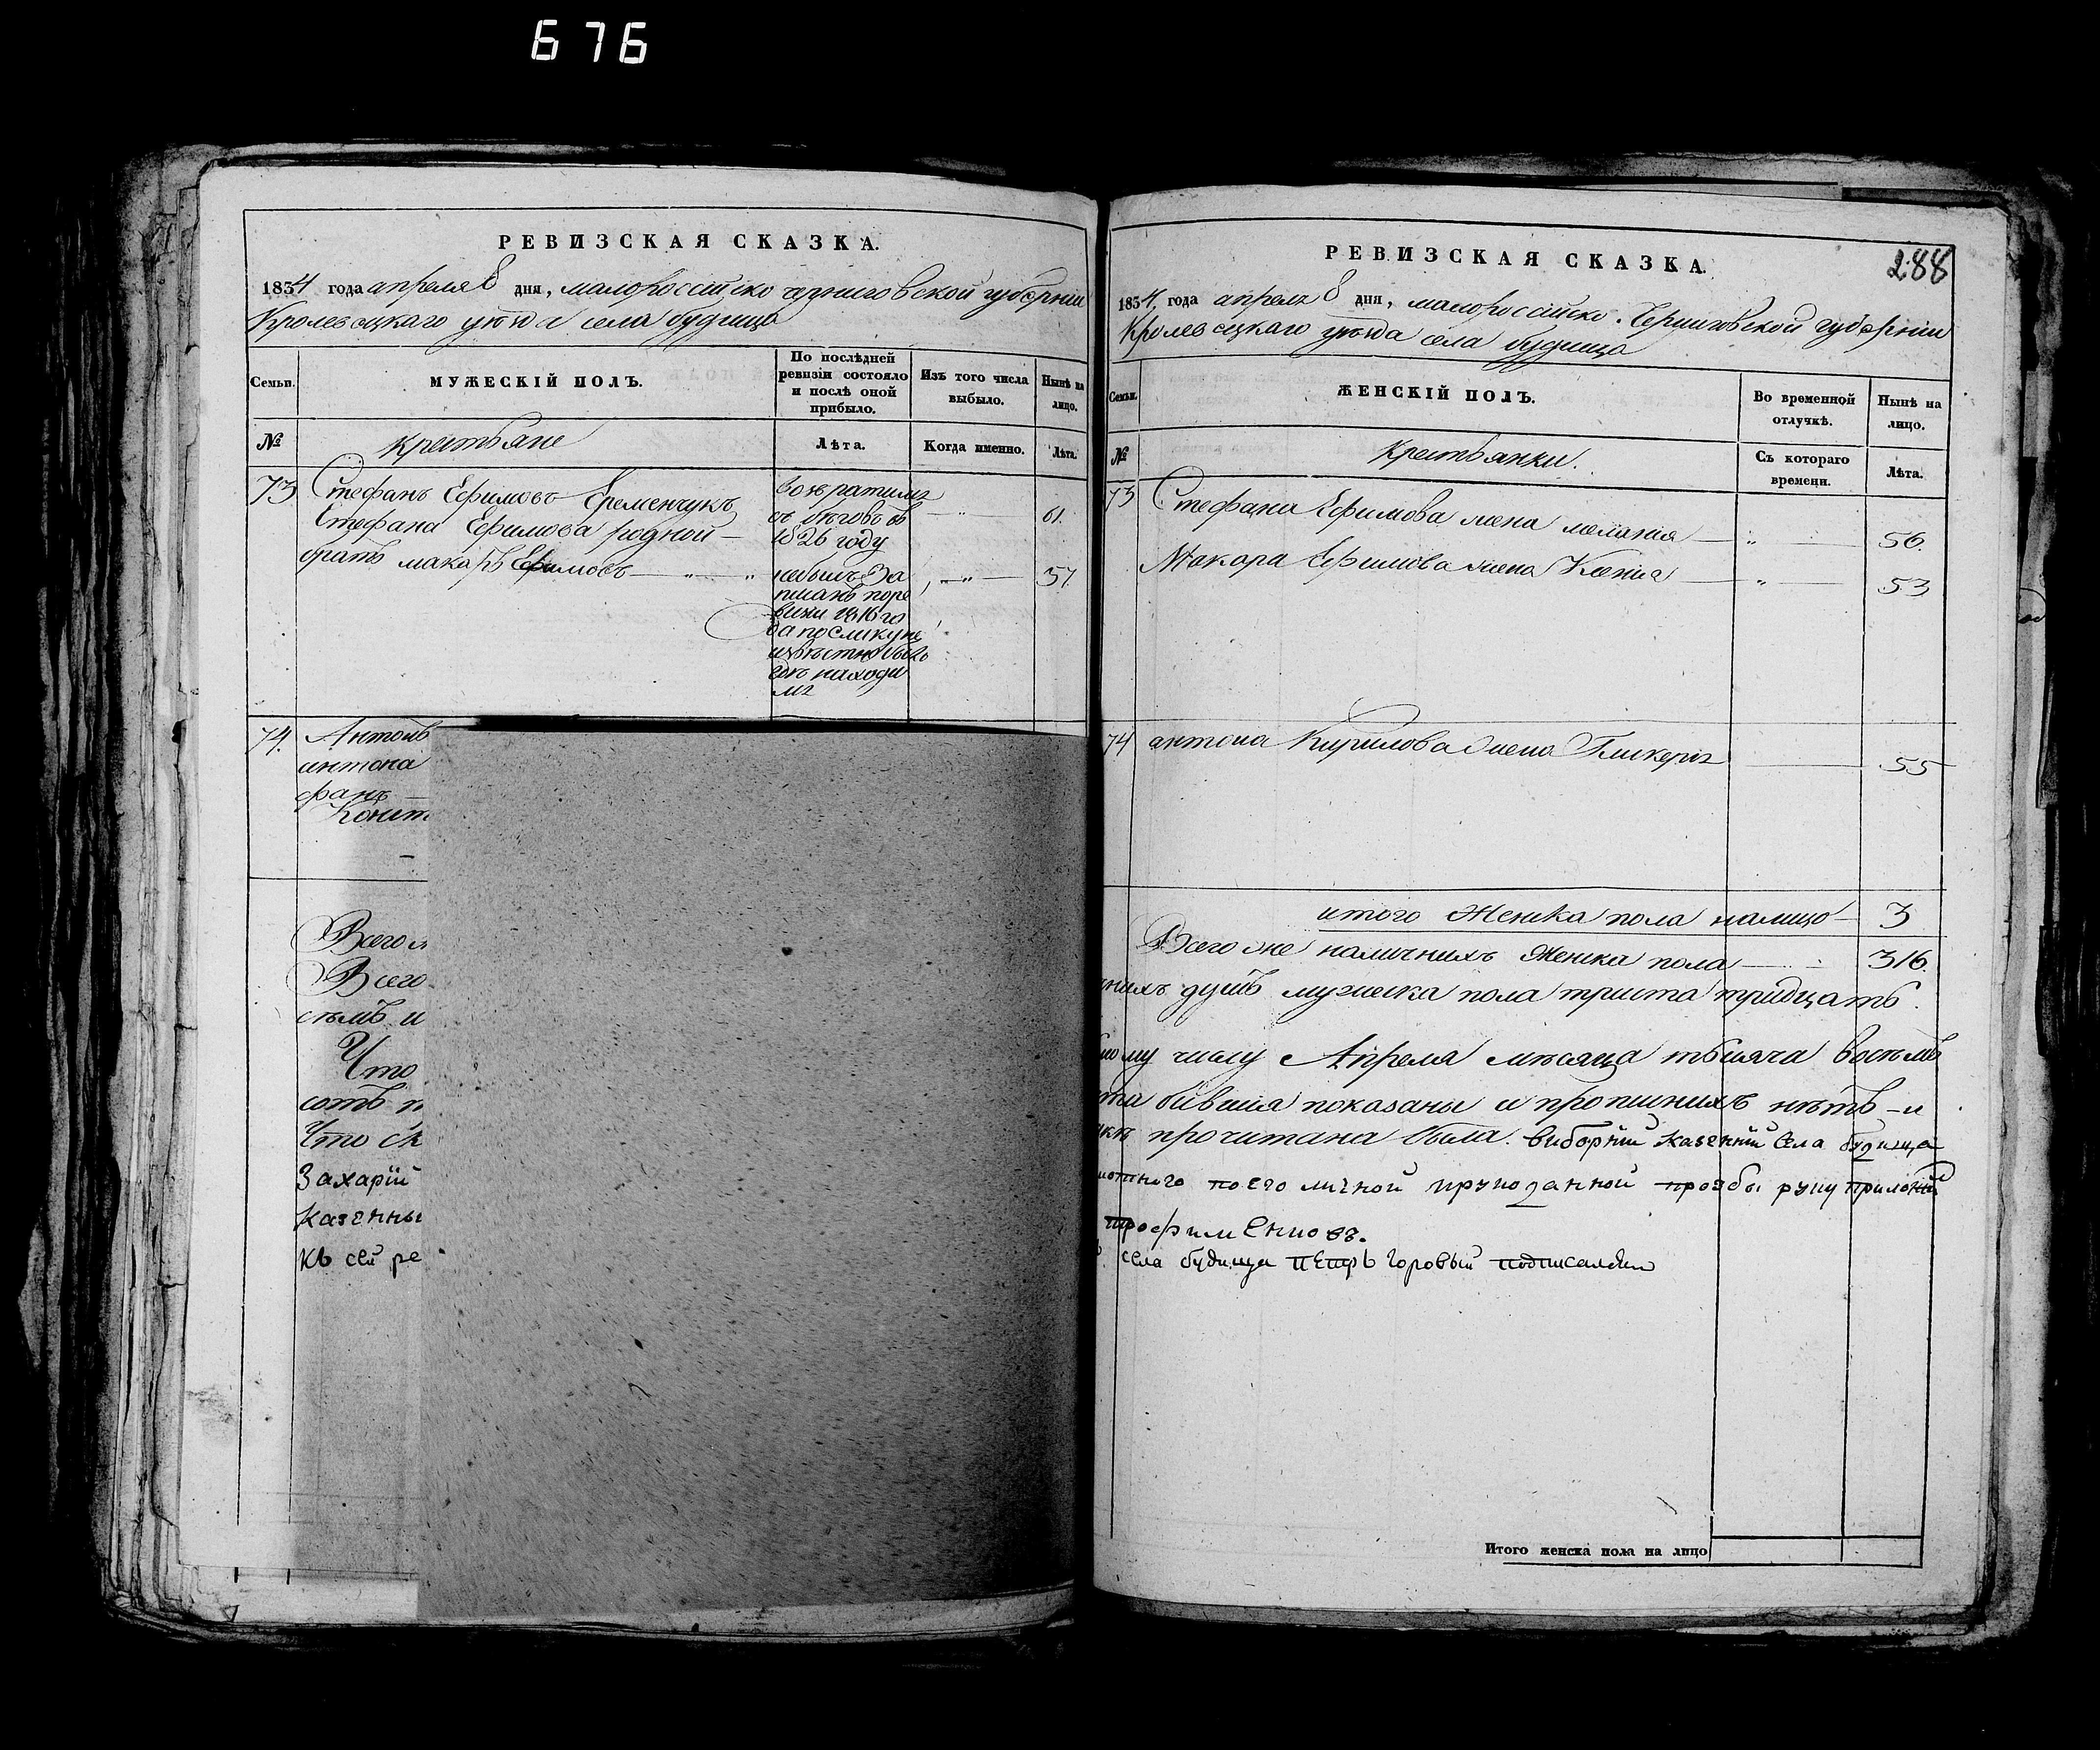 676
РЕВИЗСКАЯ СКАЗКА.
1834 года апреля 8 дня, малоросейско черниговской губернии
Кролевецкаго уезда села будища
Семьи.
МУЖЕСКІЙ ПОЛЪ.
По послѣдней
ревизіи состояло
и послѣ оной
прибыло.
Изъ того числа
выбыло.
Нынѣ на
лицо.
№
крестьяне
Лѣта.
Когда именно.
Лѣта.
73
Стефанъ Ефимовъ Еременчукъ
Стефана Ефимова родной
братъ макаръ Ефимовъ
возвратился
съ бѣговъ въ
1826 году
61.
небылъ за
писанъ поре
визіи 1816 го
да
находи
лся
57
74.
Антонъ
антона
фанъ
Конст
Всего
Всего
семь и
Что
сотъ
Что
Захарій
Казенны
Къ сей ре
РЕВИЗСКАЯ СКАЗКА.
288
1834 года апреля 8 дня, малоросейско Черниговской губернии
Кролевецкаго уезда села будища
Семьи.
ЖЕНСКІЙ ПОЛЪ.
Во временной
отлучкѣ.
Нынѣ на
лицо.
№
Крестьянки.
Съ котораго
времени.
Лѣта.
73
Стефана Ефимова жена мелания
56.
Макара Ефимова жена Ксения
53
74
антона Кирилова жена Гликерия
55
итого Женска пола налицо
3
Всего же наличнихъ Женска пола
316.
душъ мужеска пола триста тридцать
числу Апреля месяца тысяча восемь
показаны и прописнихъ нетъ и
прочитана была. виборнии казении села будища
по его личной прозбы руку приложи
трофим
села будища петръ горовый подписался
Итого женска пола на лицо